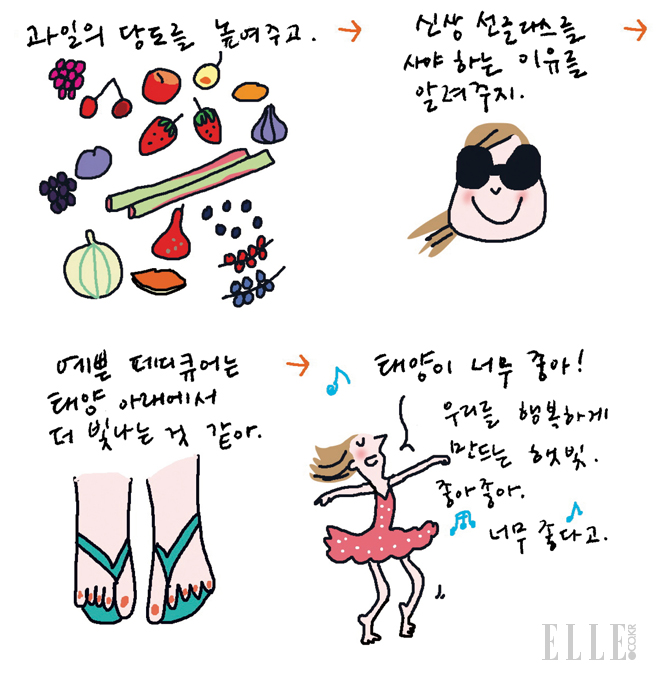 과일의 당도를 높여주고.
신상 선글라스를
사야 하는 이유를
알려주지.
예쁜 페디큐어는
태양 아래에서
더 빛나는 것 같아.
태양이 너무 좋아!
우리를 행복하게
만드는 햇빛.
좋아좋아.
너무 좋다고.
ELLE.CO.KR